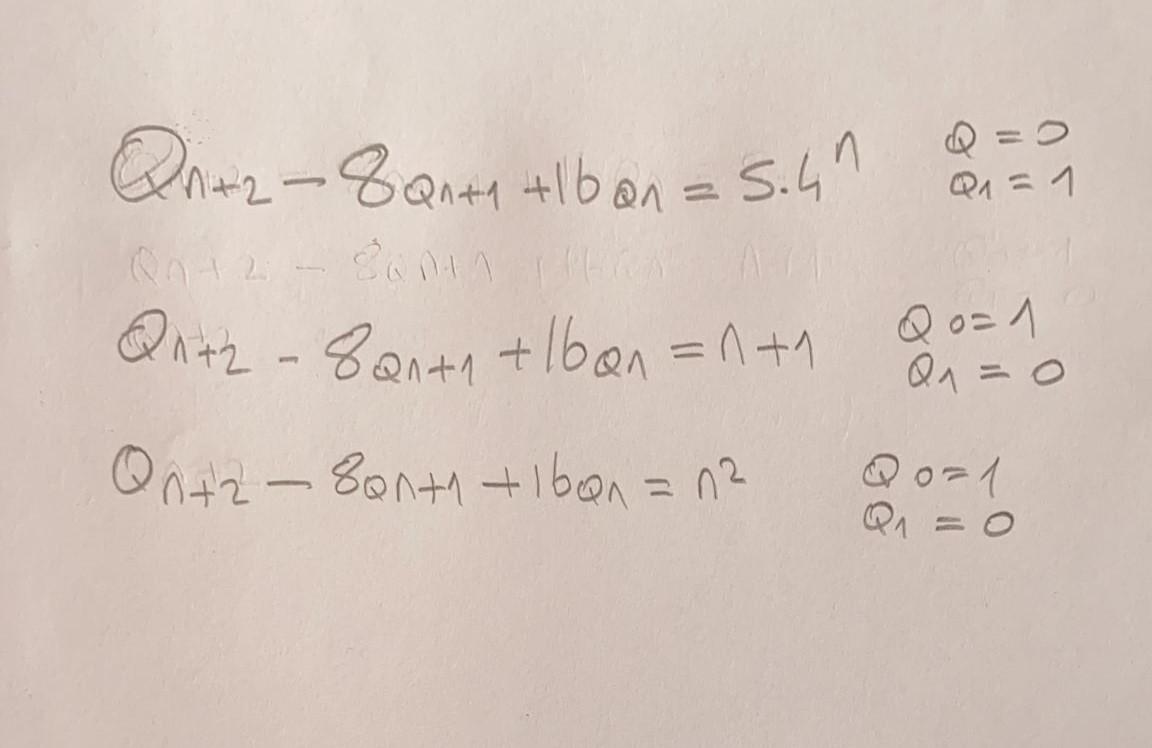 Qn+2 - 8Qn+1 + 16Qn = 5.4^n Q = 0
Q1 = 1
Qn+2 - 8Qn+1
Qn+2 - 8Qn+1 + 16Qn = n+1 Q0 = 1
Q1 = 0
Qn+2 - 8Qn+1 + 16Qn = n² Q0 = 1
Q1 = 0